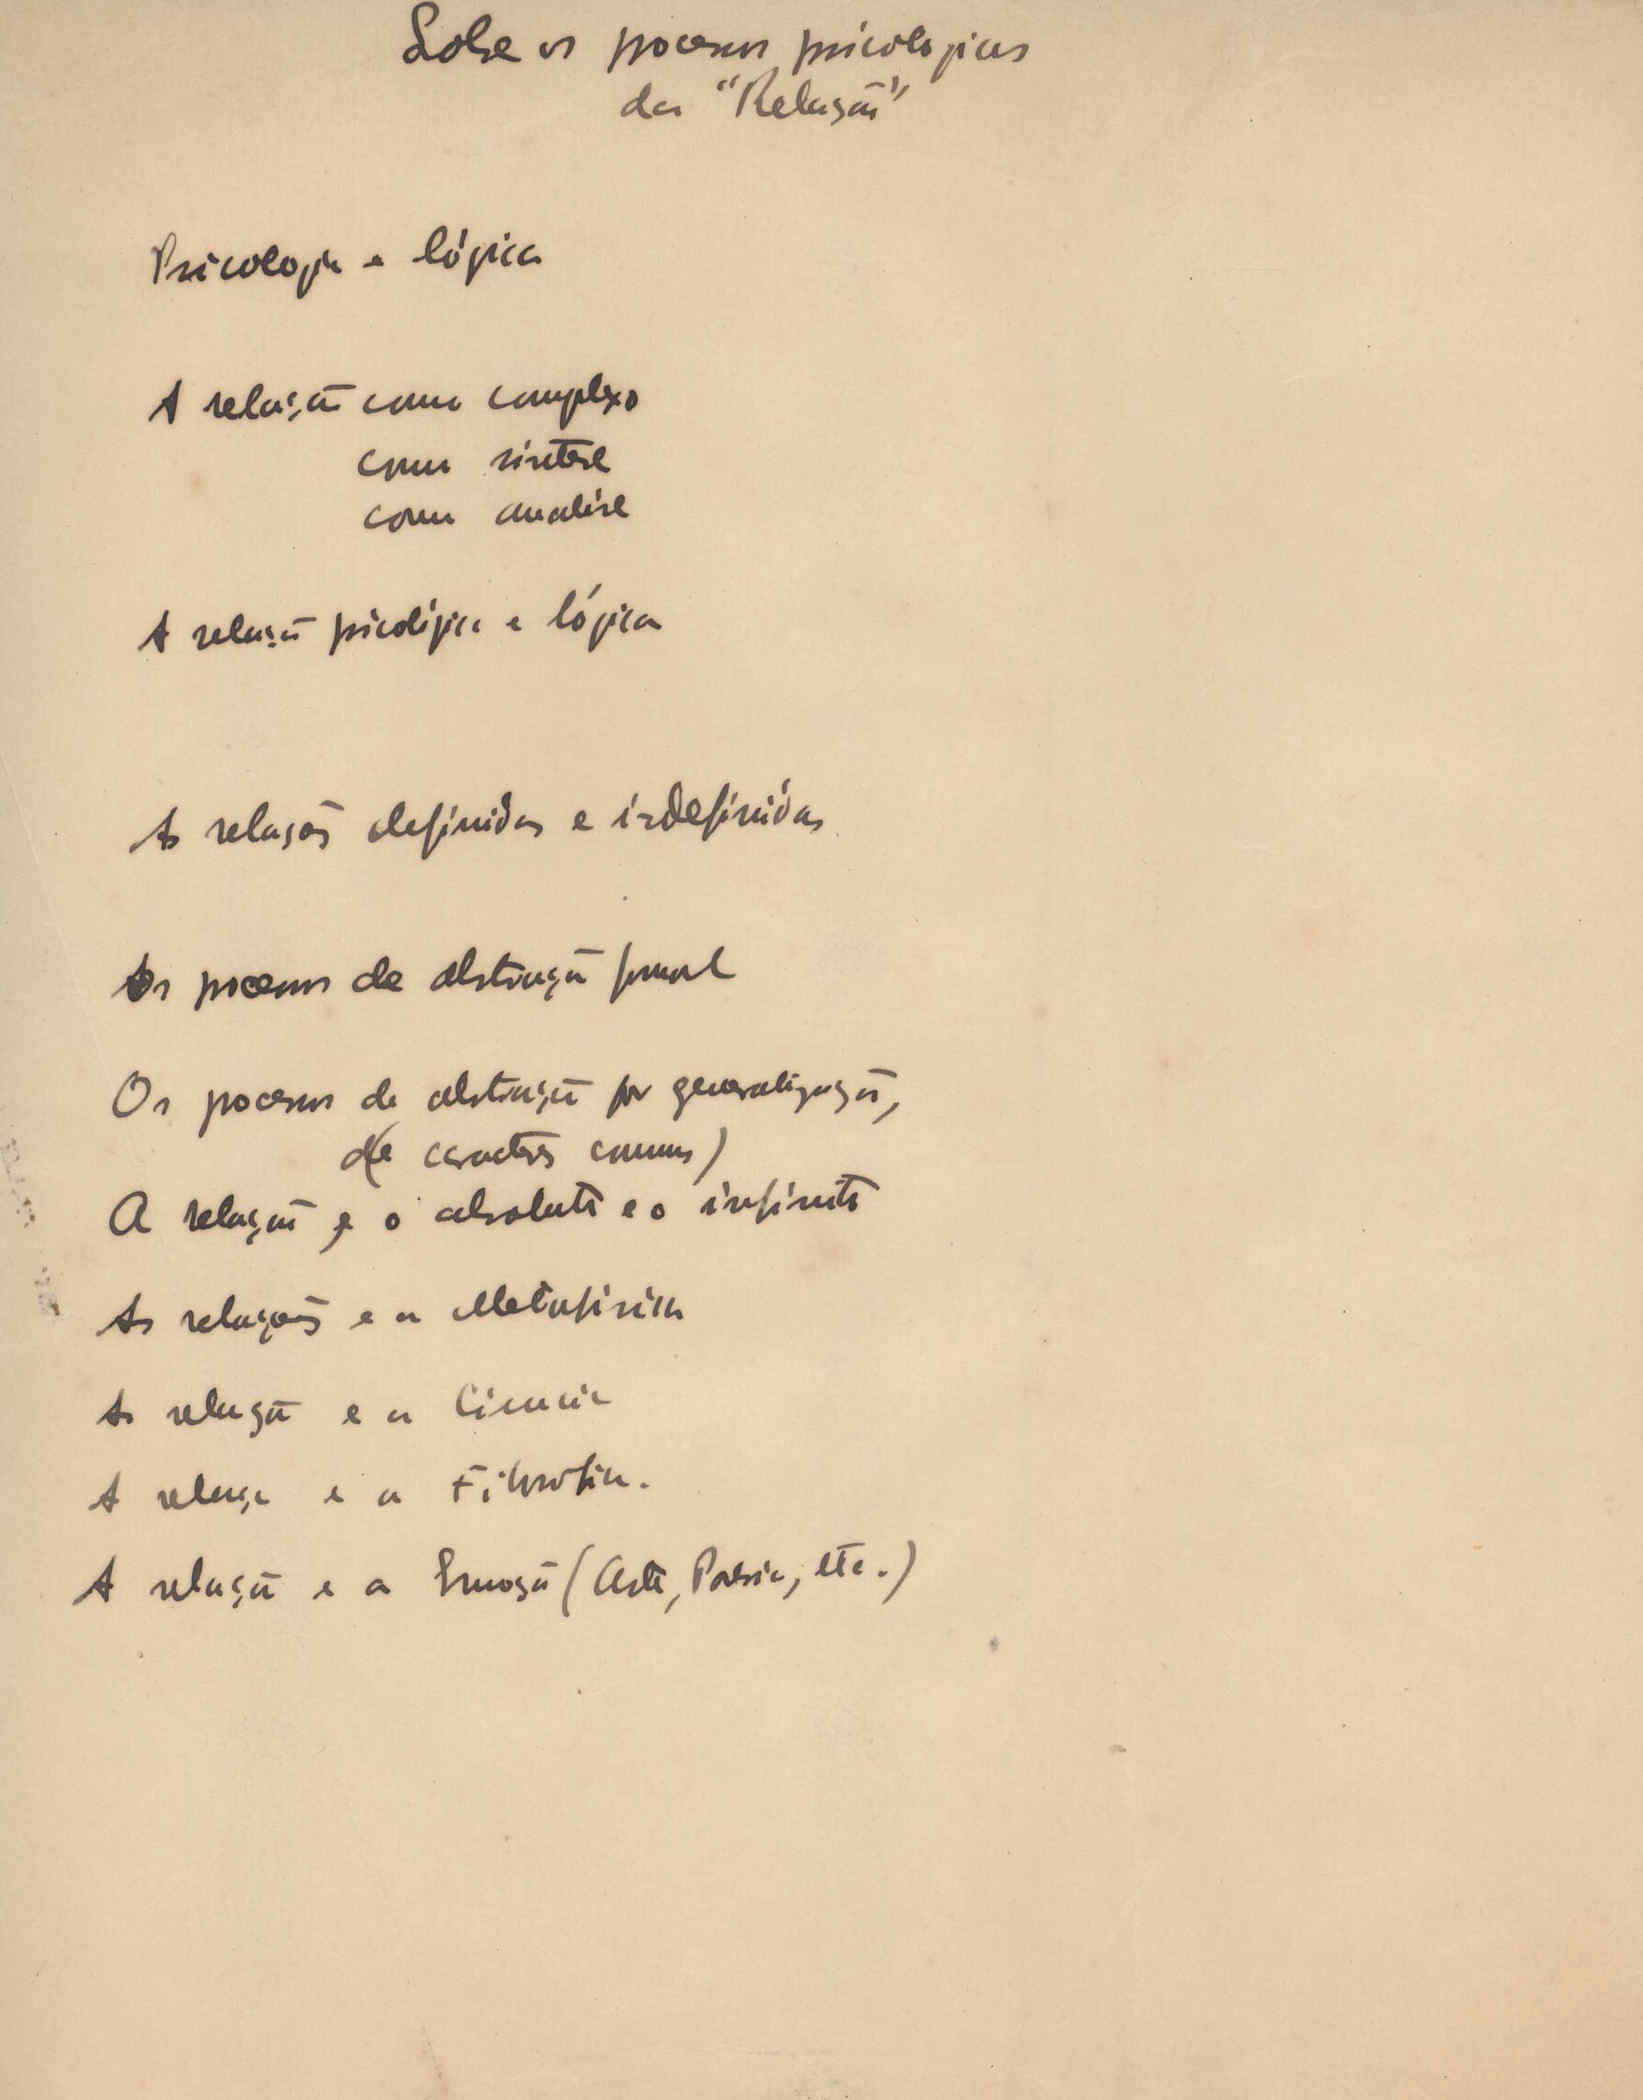 Sobre os processos psicologicos
da "Relação"
Psicologia e lógica
A relação como complexo
como sintese
como analise
A relação psicológica e lógica
As relações definidas e indefinidas
Os processos de abstração formal
Os processos de abstração por generalização,
(de caracteres comuns)
A relação e o absoluto e o infinito
As relações e a Metafisica
As relação e a Ciencia
A relação e a Filosofia.
A relação e a Emoção (Arte, Poesia, etc.)